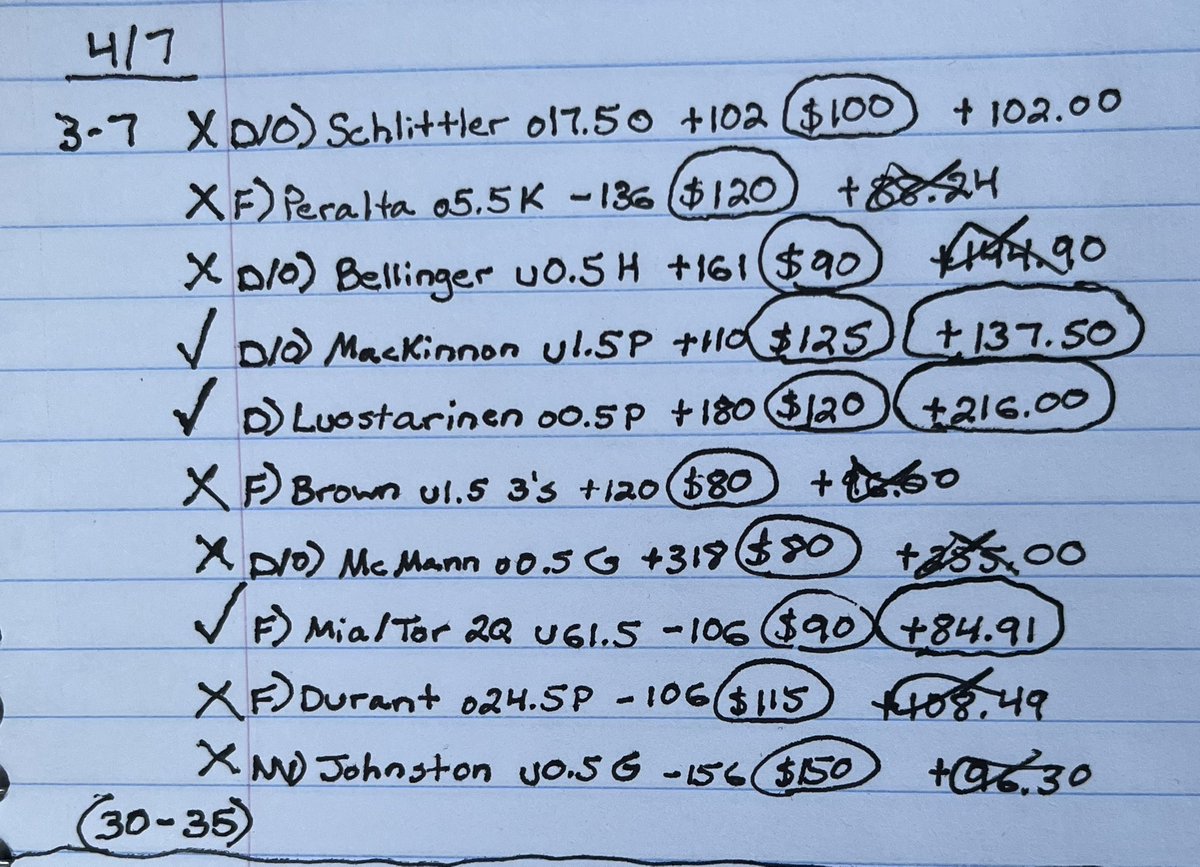 4/7
3-7 X D/O) Schlittler o17.50 +102 $100 +102.00
X F) Peralta o5.5K -136 $120 +88.24
X D/O) Bellinger u0.5H +161 $90 +144.90
✓ D/O) MacKinnon u1.5P +110 $125 +137.50
✓ D) Luostarinen o0.5P +180 $120 +216.00
X F) Brown u1.5 3's +120 $80 +96.00
X D/O) McMann o0.5G +318 $80 +255.00
✓ F) Mia/Tor 2Q u61.5 -106 $90 +84.91
X F) Durant o24.5P -106 $115 +108.49
X Johnston u0.5G -156 $150 +96.30
(30-35)